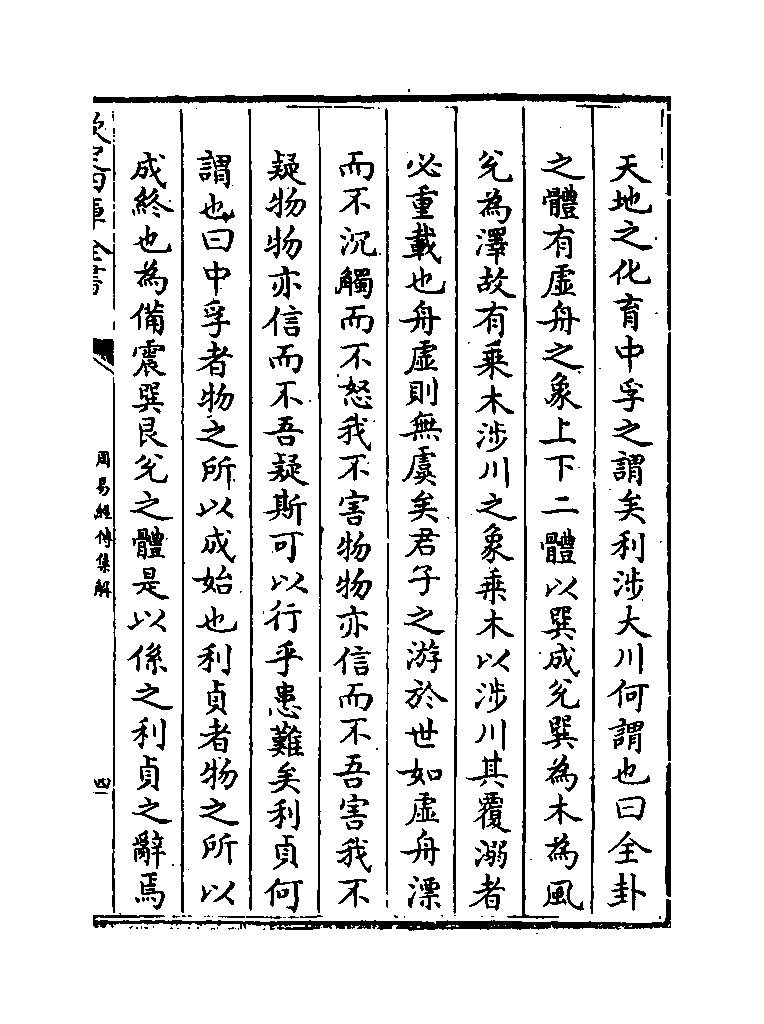 天地之化育中孚之謂矣利涉大川何謂也曰全卦
之體有虛舟之象上下二體以巽成兊巽為木為風
兊為澤故有乗木涉川之象乗木以涉川其覆溺者
必重載也舟虛則無虞矣君子之游於世如虛舟漂
而不沉觸而不怒我不害物物亦信而不吾害我不
疑物物亦信而不吾疑斯可以行乎患難矣利貞何
謂也曰中孚者物之所以成始也利貞者物之所以
成終也為備震巽艮兊之體是以係之利貞之辭焉
欽定四庫全書
周易經傳集解
四